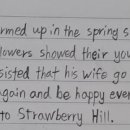 rmed up in the spring s
lowers showed their you
sisted that his wife go
again and be happy ever
to Strawberry Hill.